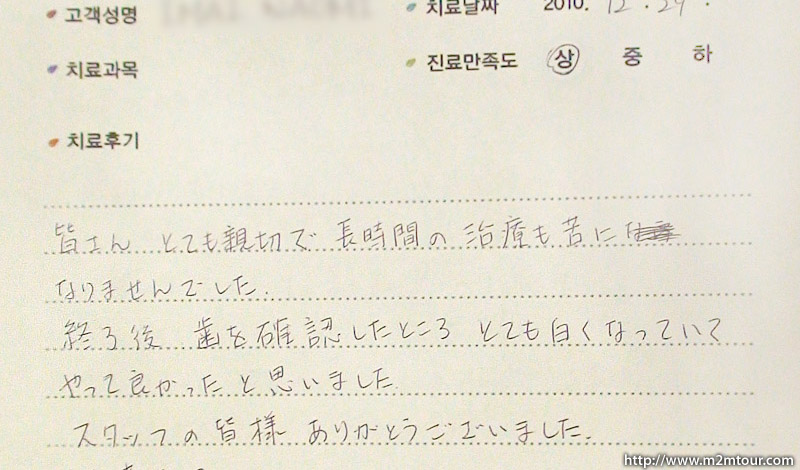 고객성명
치료날짜 2010. 12. 29.
치료과목
진료만족도 상 중 하
치료후기
皆さん とても親切で 長時間の 治療も苦に
なりませんでした.
終了後 歯を確認したところ とても白くなっていて
やって良かったと思いました.
スタッフの皆様 ありがとうございました.
http://www.m2mtour.com